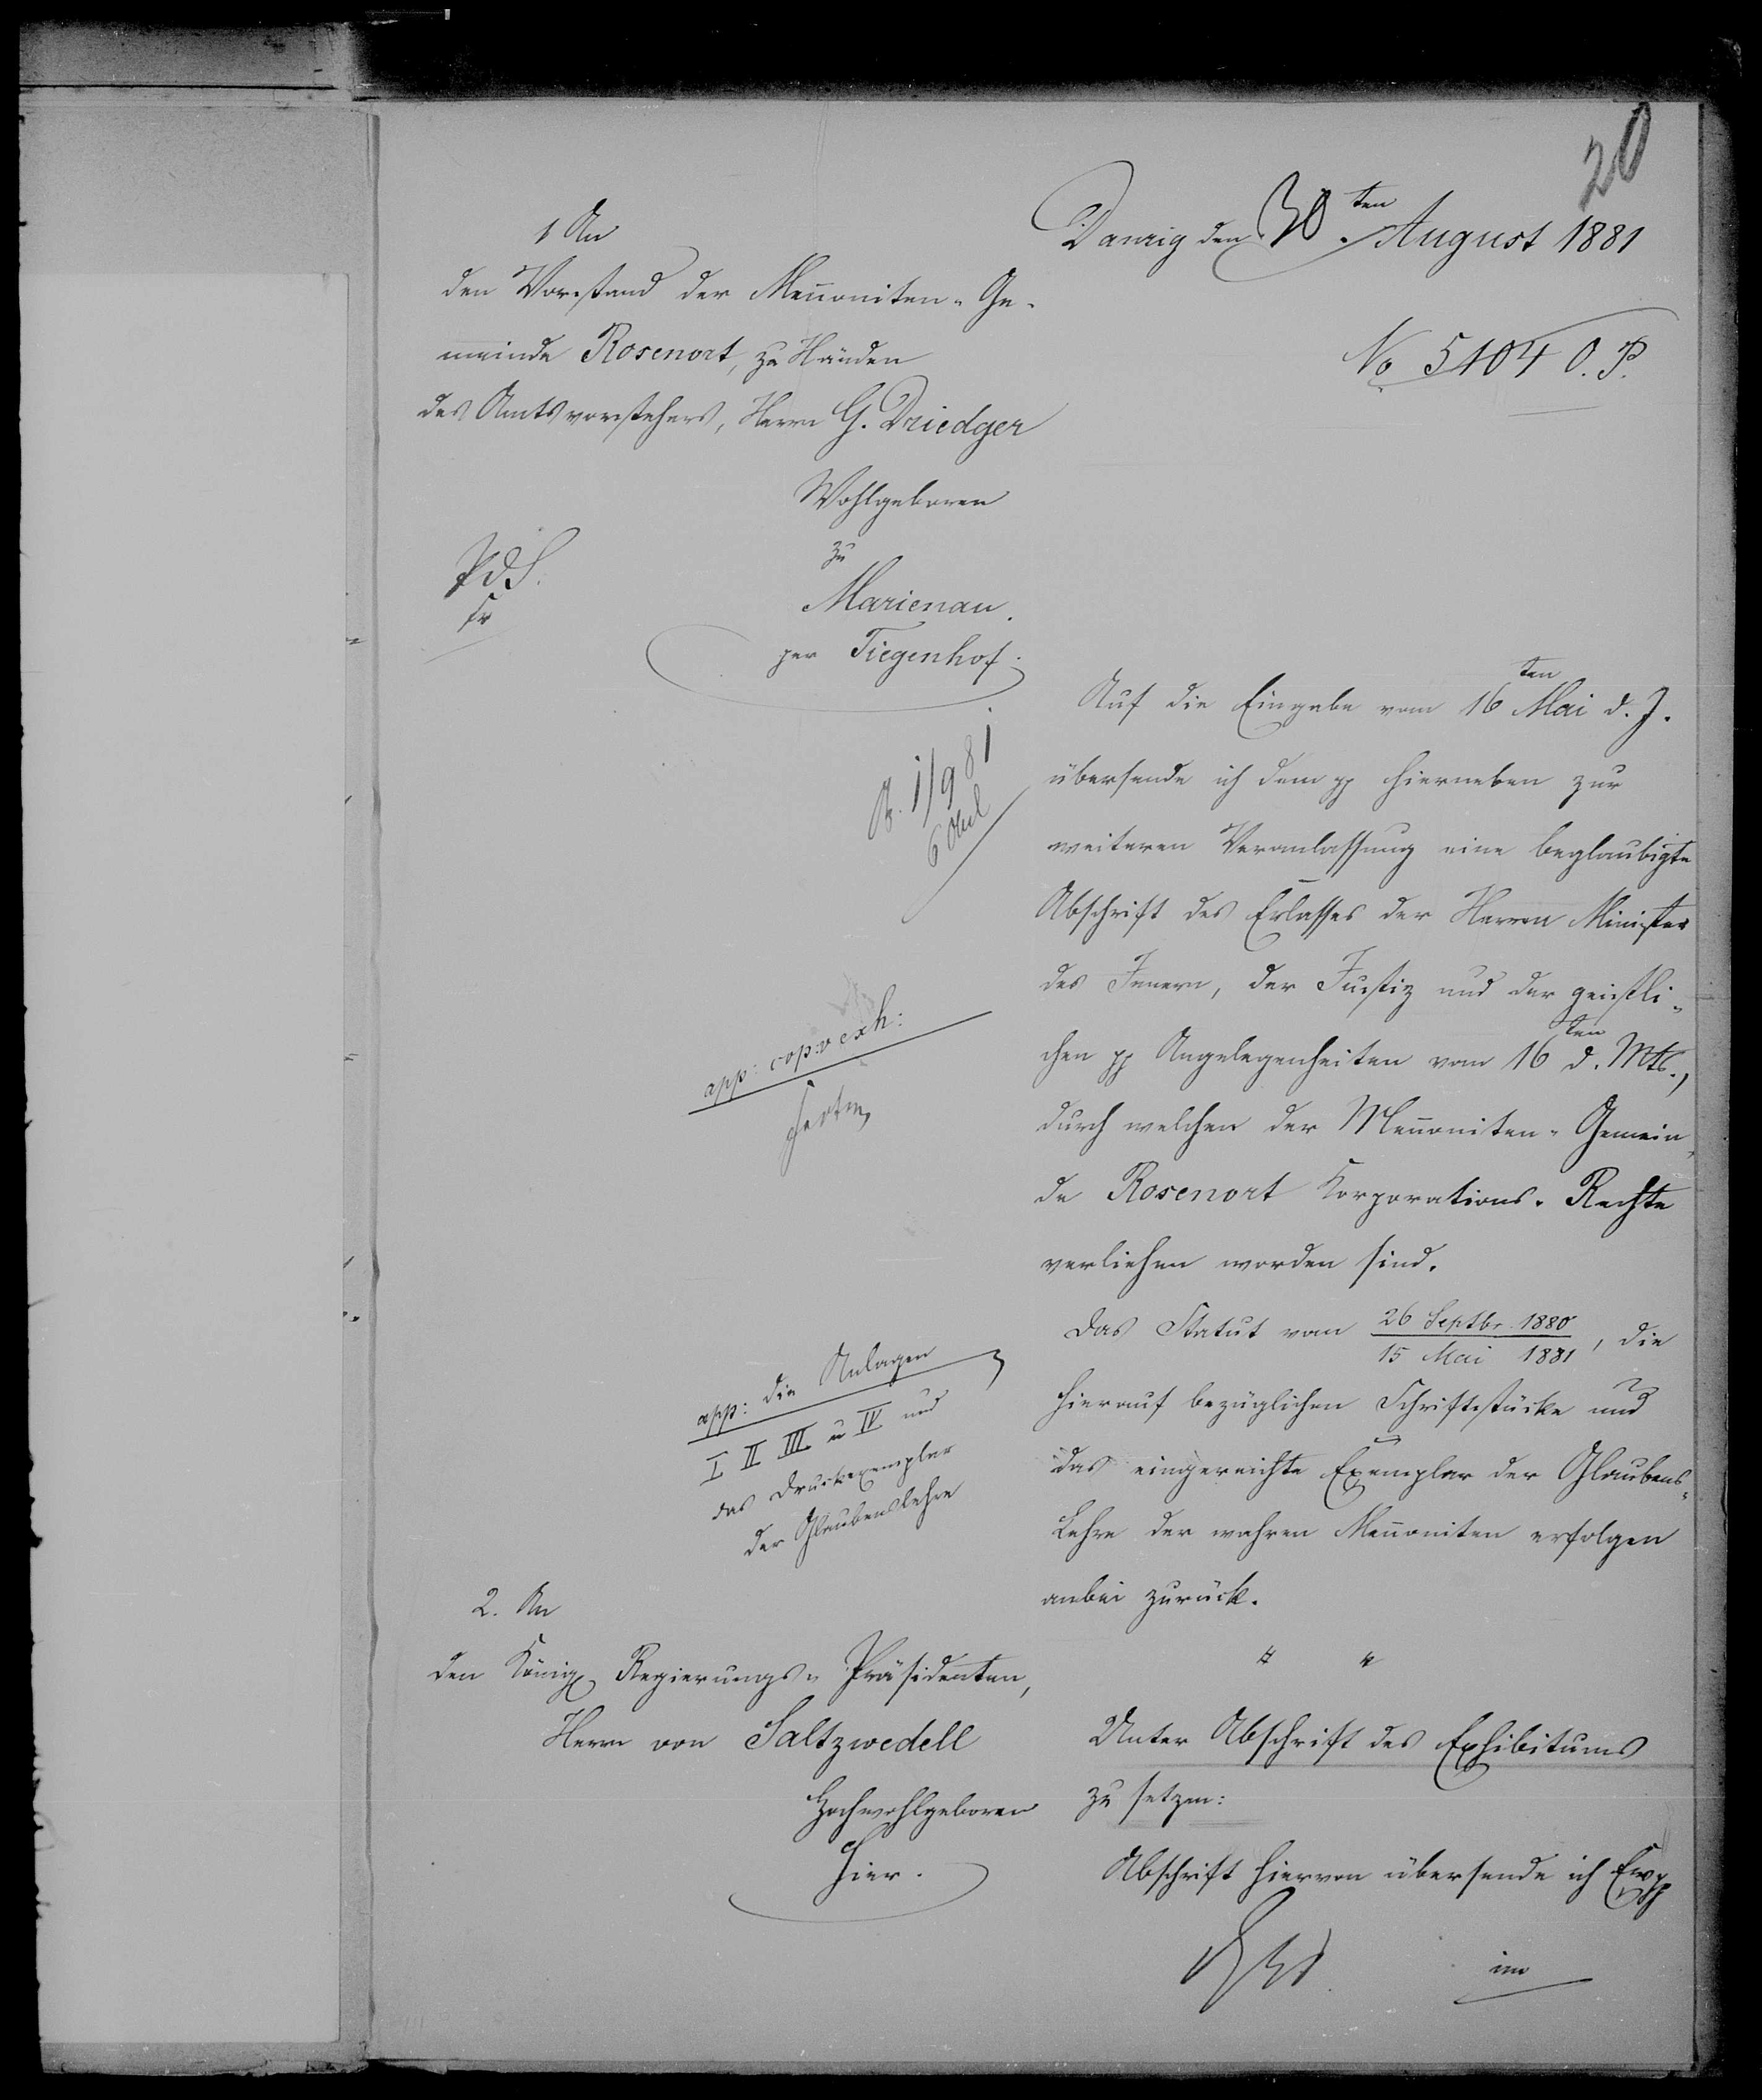 20
Danzig den 30. ten August 1881
No 5104 O. P.
1 An
den Vorstand der Mennoniten-Ge-
meinde Rosenort, zu Händen
des Amtsvorstehers, Herrn G. Driedger
Wohlgeboren
zu
Marienau.
per Tiegenhof.
Auf die Eingabe vom 16 ten Mai d. J.
übersende ich dem pp hierneben zur
weiteren Veranlassung eine beglaubigte
Abschrift des Erlasses der Herren Minister
des Innern, der Justiz und der geistli-
chen pp Angelegenheiten vom 16 ten d. Mts.,
durch welchen der Mennoniten-Gemein-
de Rosenort Korporations-Rechte
verliehen worden sind.
1/9 81
app: cop: v exh:
Das Statut vom 26 Septbr. 1880
15 Mai 1881, die
hierauf bezüglichen Schriftstücke und
das eingereichte Exemplar der Glaubens-
Lehre der wahren Mennoniten erfolgen
anbei zurück.
app: die Anlagen
I II III u IV und
das Druckexemplar
der Glaubenslehre
2. An
den Königl Regierungs-Präsidenten,
Herrn von Saltzwedell
Hochwohlgeboren
hier.
Unter Abschrift des Exhibitums
zu setzen:
Abschrift hiervon übersende ich Ew pp
im